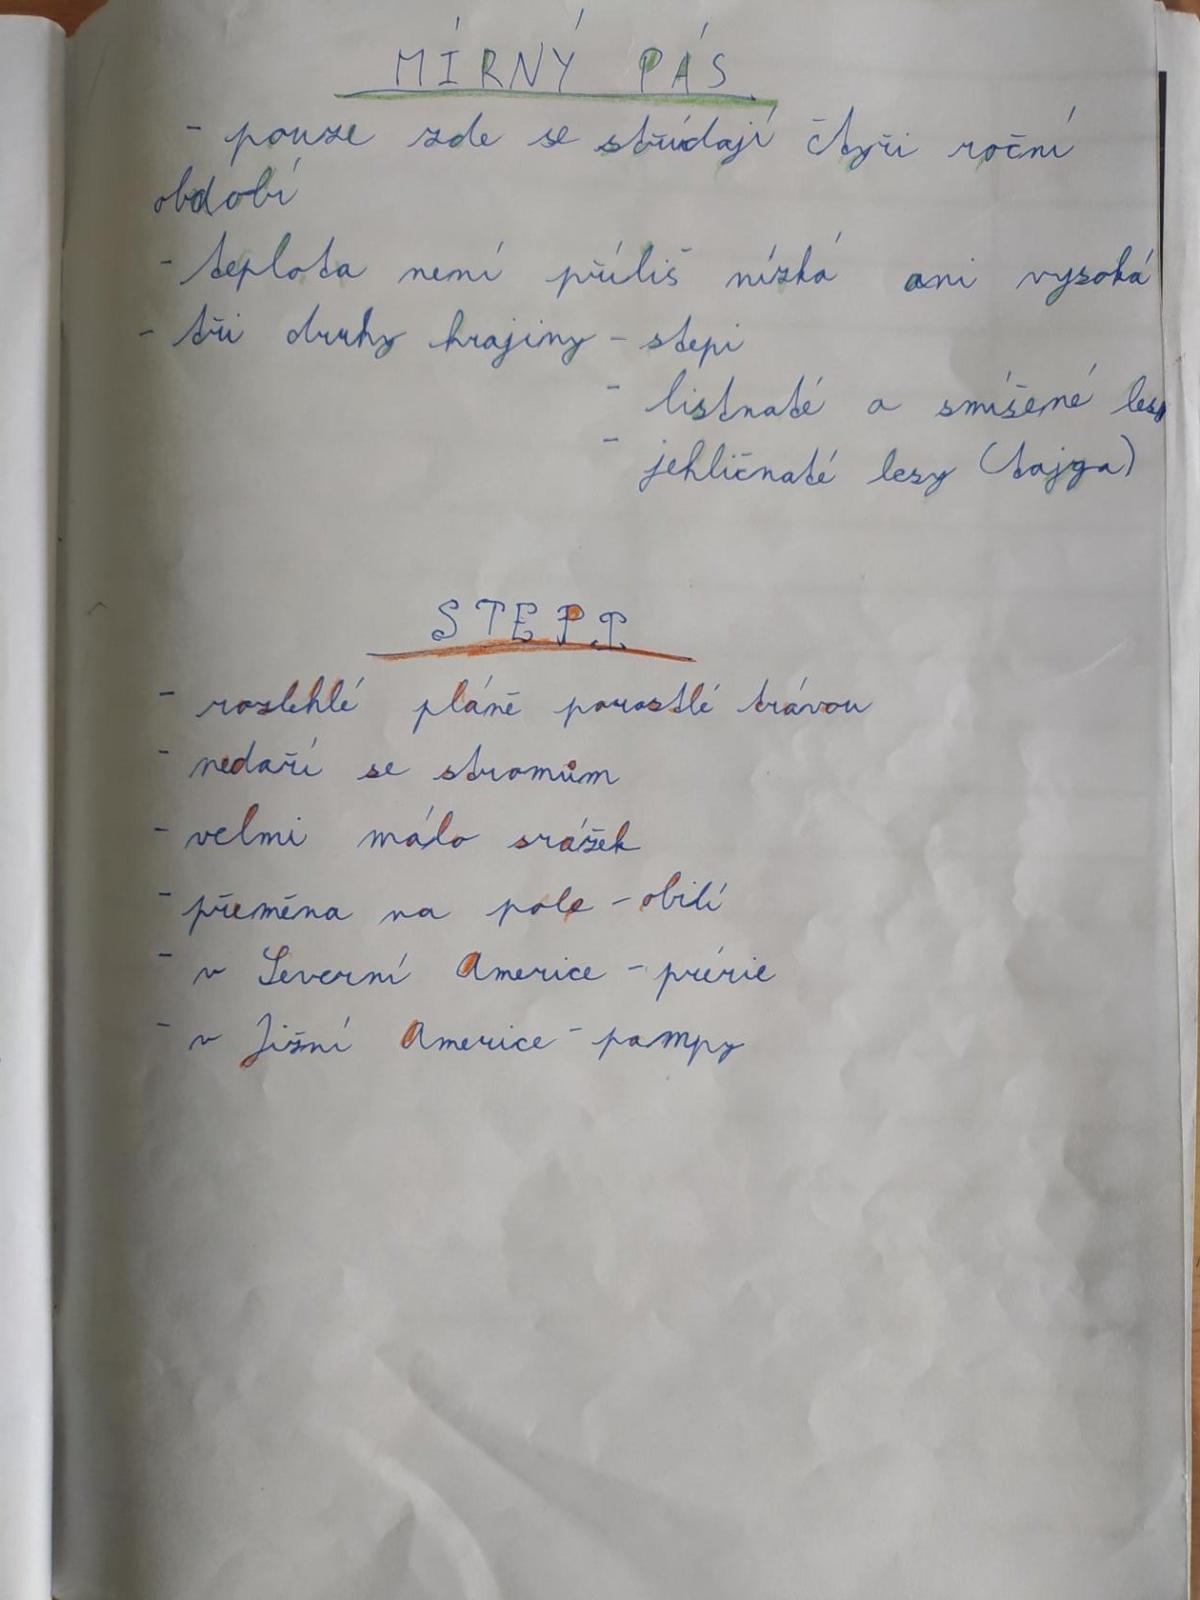 MÍRNÝ PÁS
- pouze zde se střídají čtyři roční
období
- teplota není příliš nízká ani vysoká
- tři druhy krajiny - stepi
- listnaté a smíšené lesy
- jehličnaté lesy (tajga)
STEPI
- rozlehlé pláně porostlé trávou
- nedaří se stromům
- velmi málo srážek
- přeměna na pole - obilí
- v Severní Americe - prérie
- v Jižní Americe - pampy